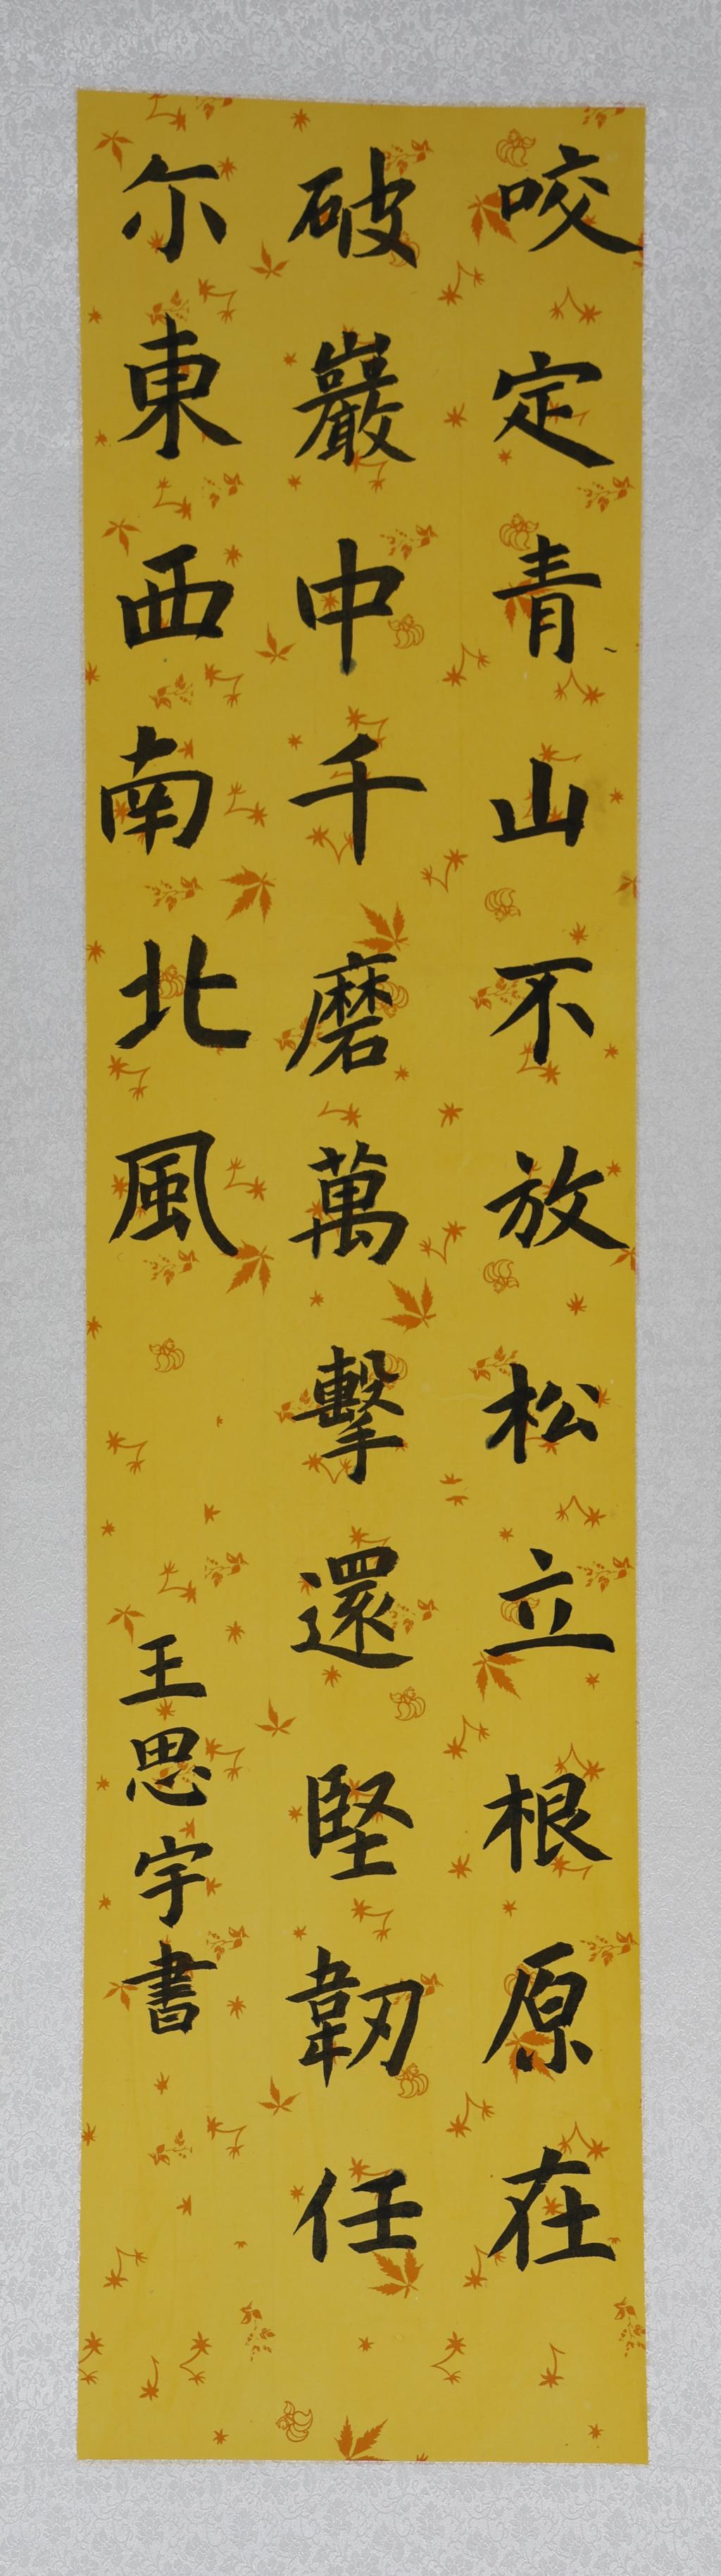 咬定青山不放松立根原在
破巖中千磨萬擊還堅韌任
尔東西南北風
王思宇書